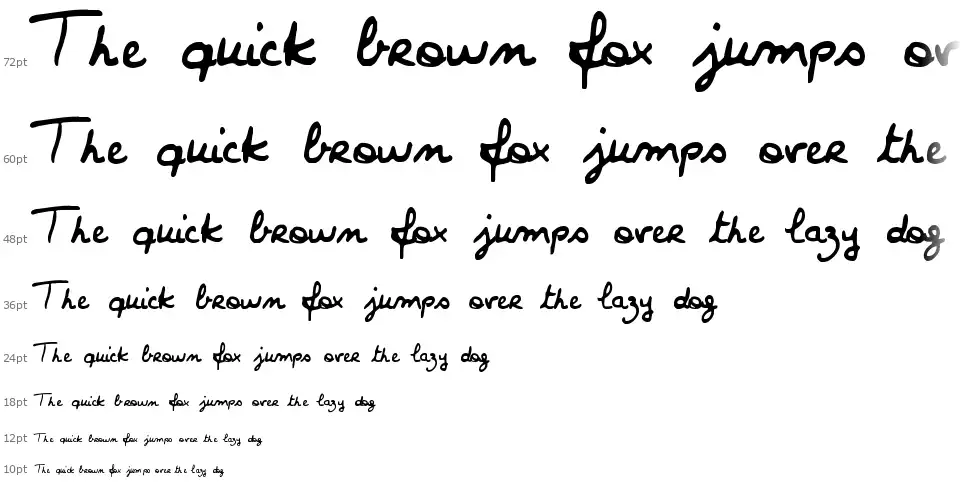 72pt The quick brown fox jumps or
60pt The quick brown fox jumps over the
48pt The quick brown fox jumps over the lazy dog
36pt The quick brown fox jumps over the lazy dog
24pt The quick brown fox jumps over the lazy dog
18pt The quick brown fox jumps over the lazy dog
12pt The quick brown fox jumps over the lazy dog
10pt The quick brown fox jumps over the lazy dog